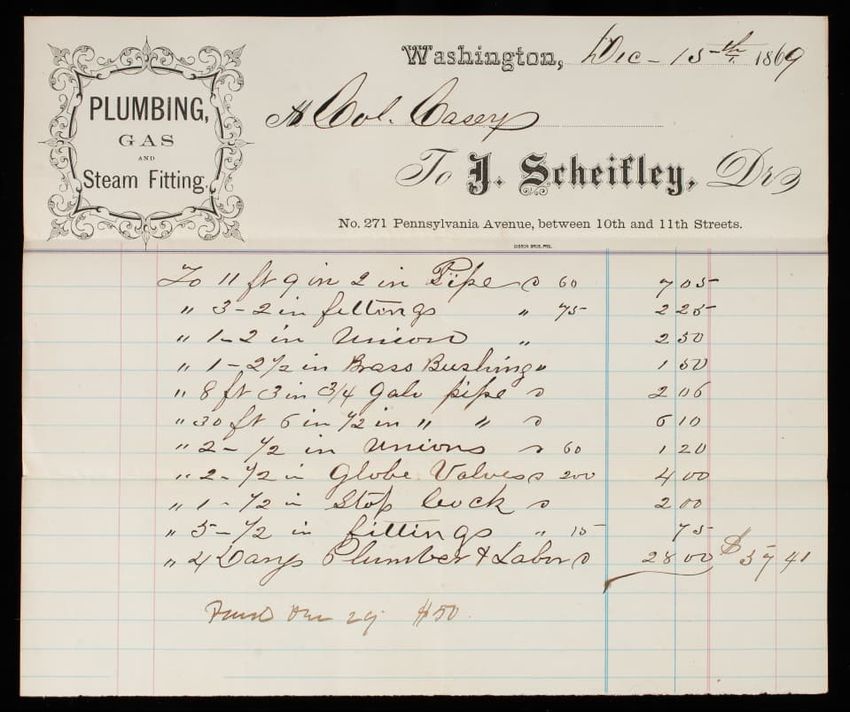 PLUMBING,
GAS
AND
Steam Fitting.
Washington, Dec- 15th 1869
Col. Casey
To J. Scheitley, Dr
No. 271 Pennsylvania Avenue, between 10th and 11th Streets.
GIBSON BROS. PRS.
To 11 ft 9 in 2 in Pipe @ 60 7 05
" 3-2 in fittings " 75 2 25
" 1-2 in Union " 2 50
" 1-2 1/2 in Brass Bushing " 1 50
" 8 ft 3 in 3/4 Galv pipe @ 2 06
" 30 ft 6 in 1/2 in " " @ 6 10
" 2- 1/2 in Unions @ 60 1 20
" 2- 1/2 in Globe Valves @ 200 4 00
" 1- 1/2 in Stop Cock @ 2 00
" 5- 1/2 in fittings " 15 75
" 4 Days Plumber & Labor @ 28 00 $57 41
29 $50